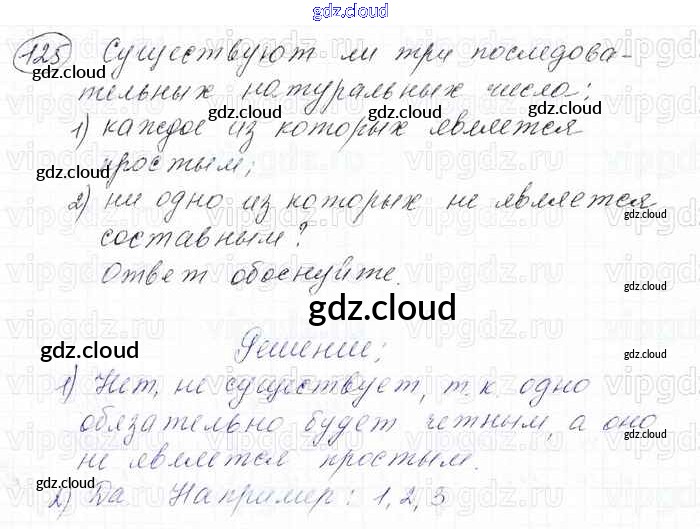 gdz.cloud
125 Существуют ли три последова-
gdz.cloud
тельных натуральных числа:
gdz.cloud gdz.cloud gdz.cloud
1) каждое из которых является
простым;
gdz.cloud
2) ни одно из которых не является
gdz.cloud
составным?
Ответ обоснуйте.
gdz.cloud
gdz.cloud
gdz.cloud
Решение:
gdz.cloud
1) Нет, не существует, т.к. одно
обязательно будет четным, а оно
gdz.cloud
не является простым.
gdz.cloud gdz.cloud gdz.cloud
2) Да. Например: 1, 2, 3